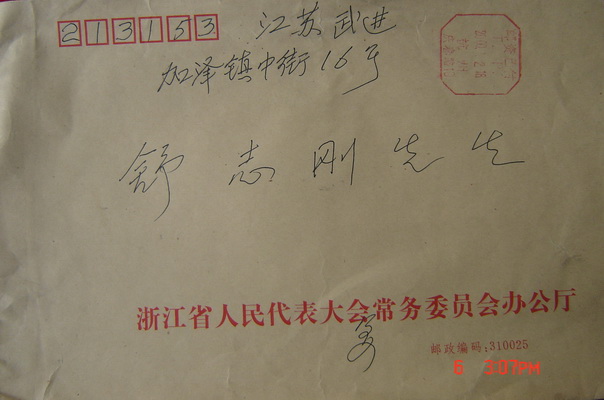 213153 江苏武进
加泽镇中街16号
舒志刚先生
浙江省人民代表大会常务委员会办公厅
邮政编码:310025
6 3:07PM